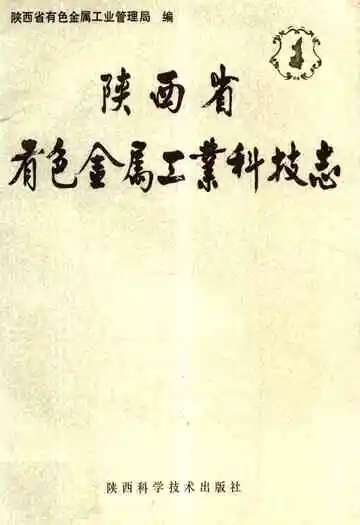 陕西省有色金属工业管理局 编
陕西省
有色金属工業科技志
陕西科学技术出版社